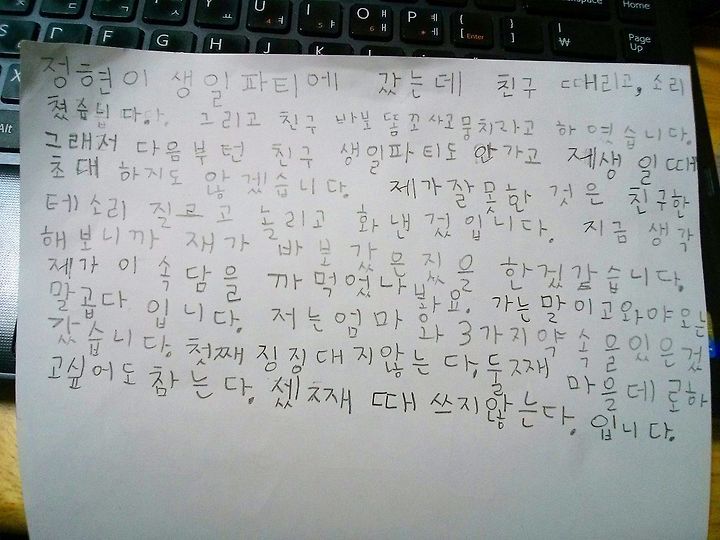 정현이 생일파티에 갔는데 친구 때리고, 소리
쳤습닙다다. 그리고 친구 바보 똥꼬 사고뭉치라고 하였습니다.
그래저 다음부턴 친구 생일파티도 안가고 제생일때
초대 하지도 않겠습니다. 제가잘못한 것은 친구한
테소리 질르고 놀리고 화낸것입니다. 지금 생각
해보니까 재가 바보 같은짓을 한것같습니다.
제가 이 속담을 까먹었나봐요. 가는말이고와야오는
말곱다 입니다. 저는엄마와 3가지약속을있은것
같습니다. 첫째 징징대지않는다, 둘째 마음데로하
고싶어도참는다. 쎘째 때쓰지않는다. 입니다.